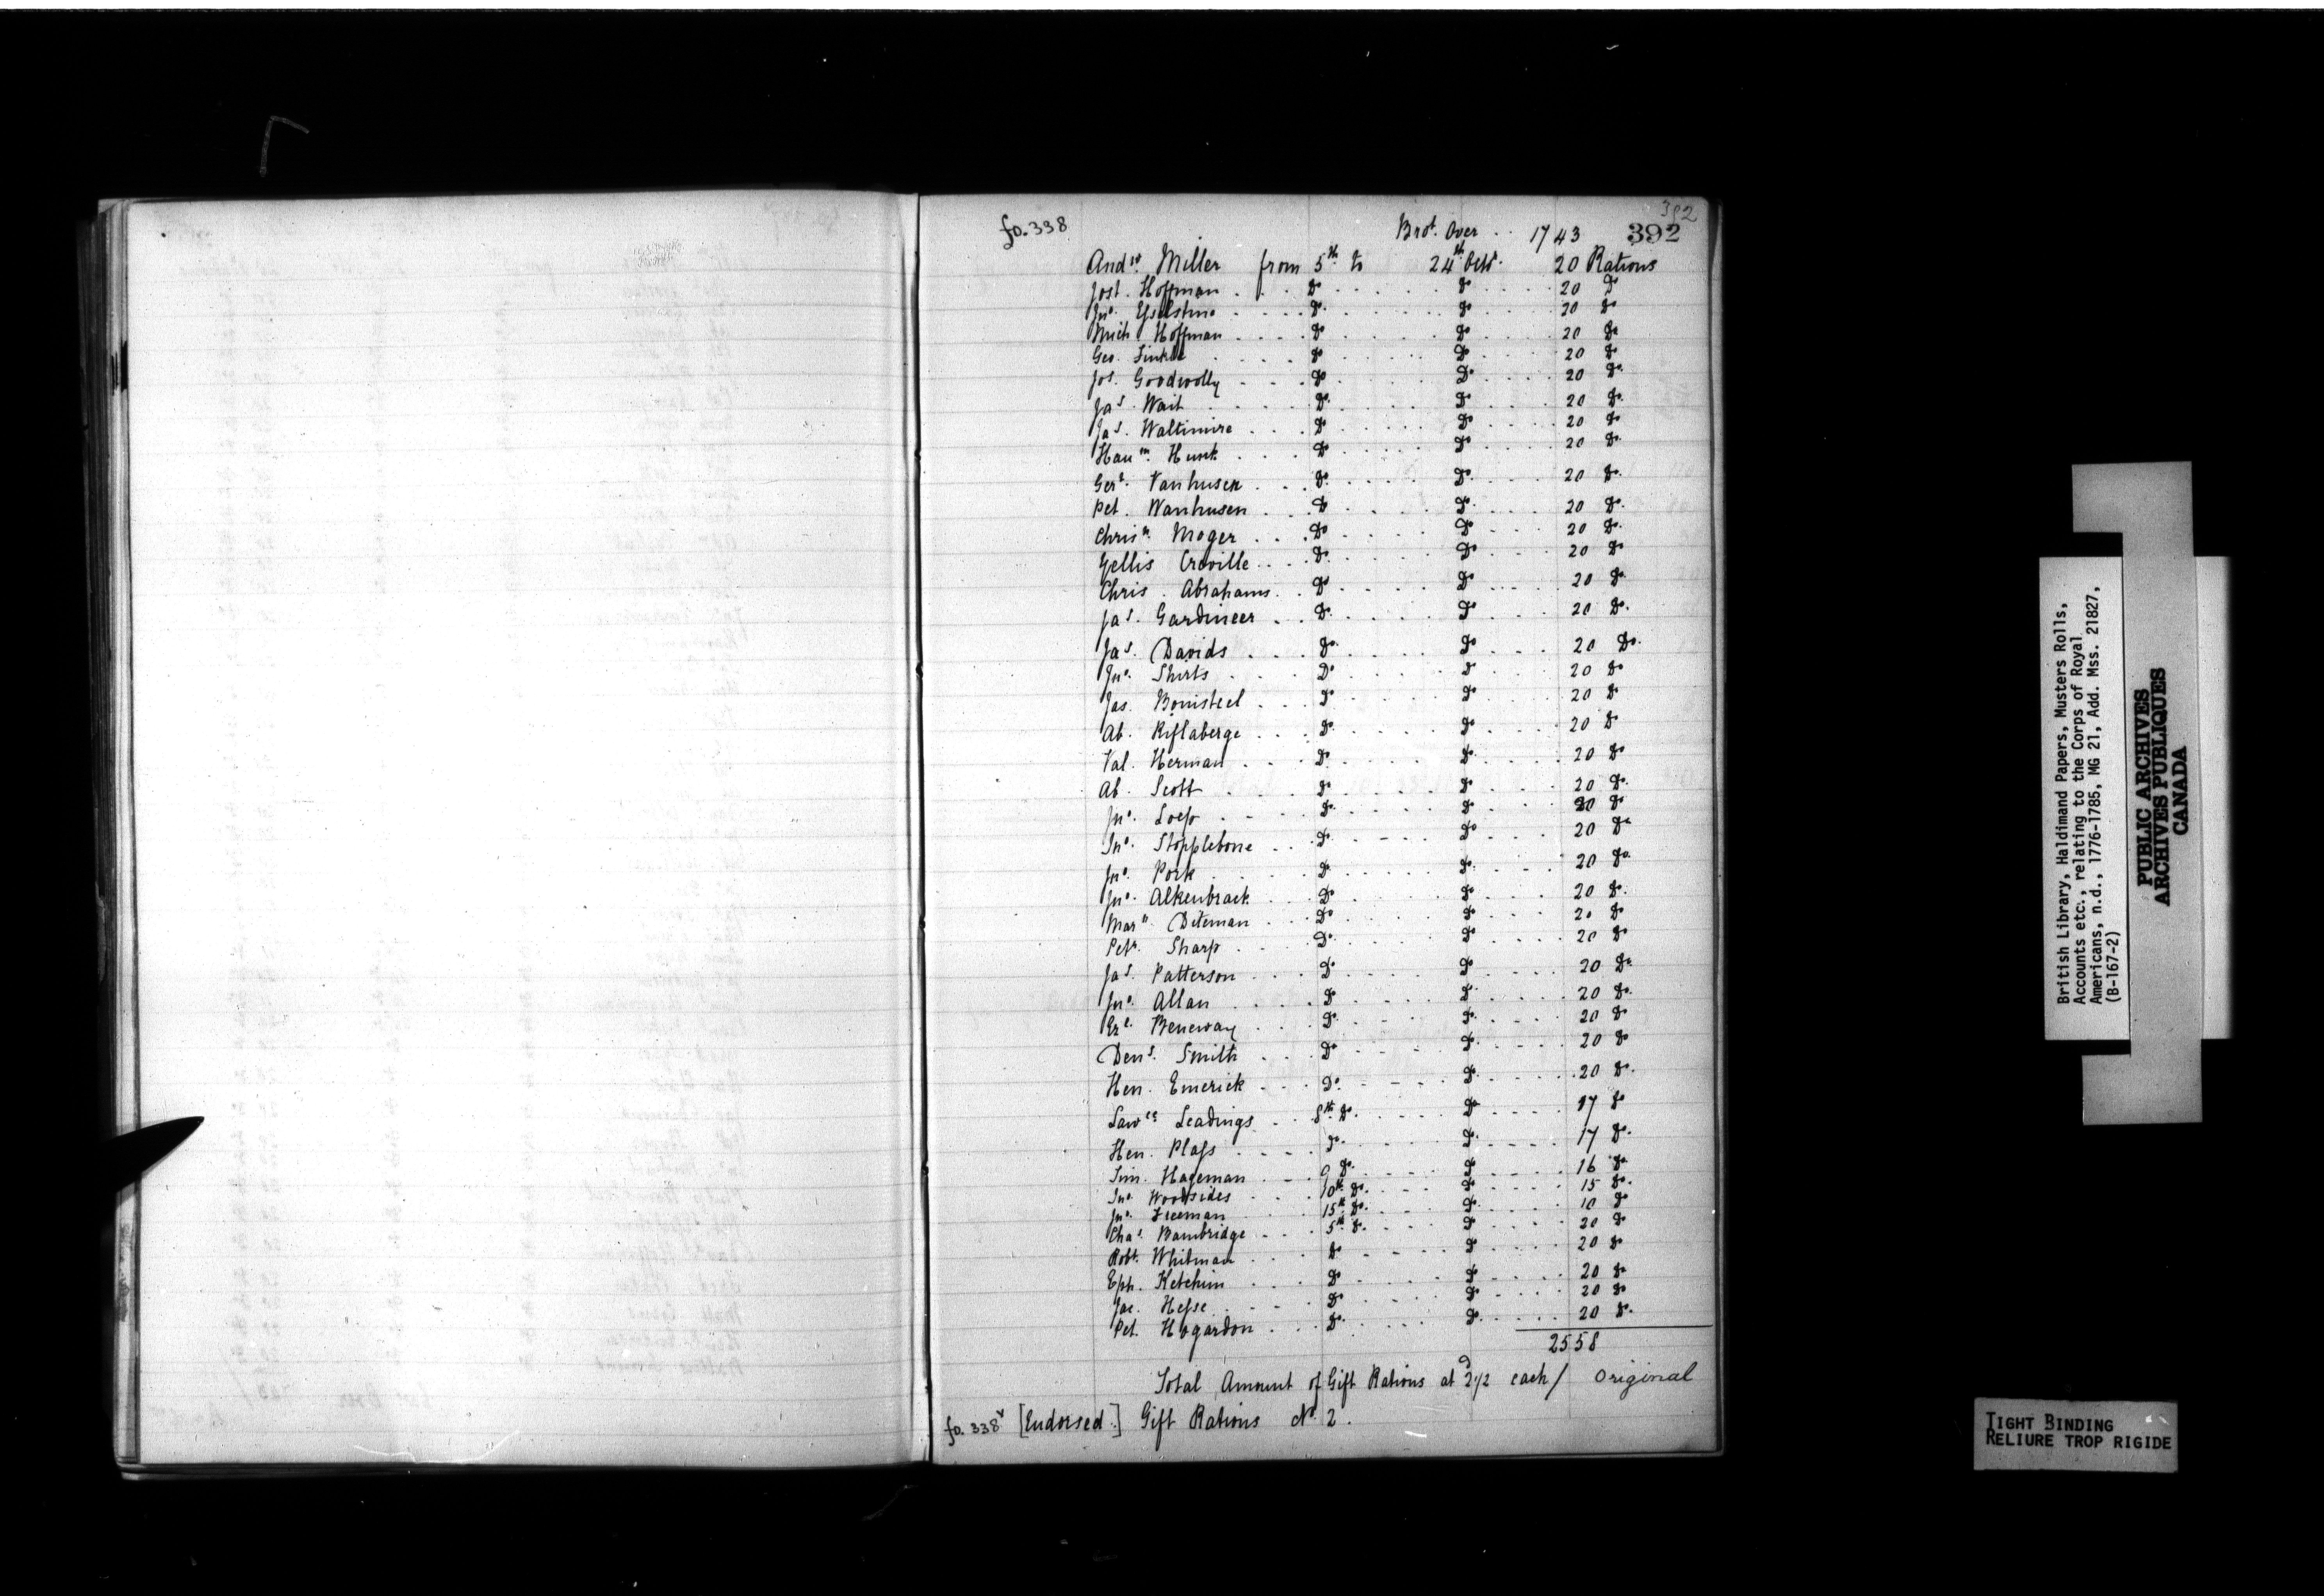 392
fo. 338 Brot. Over .. 1743 392
Andw. Miller from 5th to 24th Octr. 20 Rations
Jost. Hoffman . . . Do . . . . Do . . . . 20 Do
Jno. . . . . Do . . . . Do . . . . 20 Do
Mich Hoffman . . . . Do . . . . Do . . . . 20 Do
Geo. . . . . Do . . . . Do . . . . 20 Do
Jos. Goodwolly . . . . Do . . . . Do . . . . 20 Do
Jas. Wait . . . . Do . . . . Do . . . . 20 Do
Jas. Waltimire . . . Do . . . . Do . . . . 20 Do
Haum. Hunk . . . . Do . . . . Do . . . . 20 Do
Gert. Vanhusen . . . Do . . . . Do . . . . 20 Do
Pet. Wanhusen . . . Do . . . . Do . . . . 20 Do
Chrisn. Moger . . . Do . . . . Do . . . . 20 Do
Gellis Croville . . . Do . . . . Do . . . . 20 Do
Chris . Abrahams . . Do . . . . Do . . . . 20 Do
Jas. Gardineer . . . Do . . . . Do . . . . 20 Do.
Jas. Davids . . . . Do . . . . Do . . . . 20 Do.
Jno. Shirts . . . . Do . . . . Do . . . . 20 Do
Jas. Bonisteel . . . Do . . . . Do . . . . 20 Do
Ab. Riflaberge . . . Do . . . . Do . . . . 20 Do
Val. Herman . . . . Do . . . . Do . . . . 20 Do
Ab. Scott . . . . Do . . . . Do . . . . 20 Do.
Jno. Loess . . . . Do . . . . Do . . . . 20 Do
Jno. Stopplebone . . . Do . . . . Do . . . . 20 Do
Jno. Pork . . . . Do . . . . Do . . . . 20 Do
Jno. Alkenbrack . . . Do . . . . Do . . . . 20 Do.
Marn. Diteman . . . Do . . . . Do . . . . 20 Do
Petr. Sharp . . . . Do . . . . Do . . . . 20 Do
Jas. Patterson . . . Do . . . . Do . . . . 20 Do
Jno. Allan . . . . Do . . . . Do . . . . 20 Do.
Beneway . . . Do . . . . Do . . . . 20 Do
Dens. Smith . . . Do . . . . Do . . . . 20 Do
Hen. Emerick . . . Do . . . . Do . . . . 20 Do.
Lawce Leadings . . 8th Do. . . . . Do . . . . 17 Do
Hen. Plass . . . . Do . . . . Do . . . . 17 Do.
Sim. Hageman . . . 9 Do. . . . . Do . . . . 16 Do
Jno. Woodsides . . . 10th Do. . . . . Do . . . . 15 Do.
Jno. Freeman . . . 15th Do. . . . . Do . . . . 10 Do
Chas. Bambridge . . . 5th Do. . . . . Do . . . . 20 Do
Robt. Whitman . . . Do . . . . Do . . . . 20 Do
Eph. Ketchum . . . . Do . . . . Do . . . . 20 Do
Jac. Hesse . . . . Do . . . . Do . . . . 20 Do
Pet. Hogardon . . . Do . . . . Do . . . . 20 Do.
2558
Total Amount of Gift Rations at 2 1/2 d each/ Original
fo. 338v [Endorsed.] Gift Rations No. 2.
British Library, Haldimand Papers, Musters Rolls,
Accounts etc., relating to the Corps of Royal
Americans, n.d., 1776-1785, MG 21, Add. Mss. 21827,
(B-167-2)
PUBLIC ARCHIVES
ARCHIVES PUBLIQUES
CANADA
TIGHT BINDING
RELIURE TROP RIGIDE